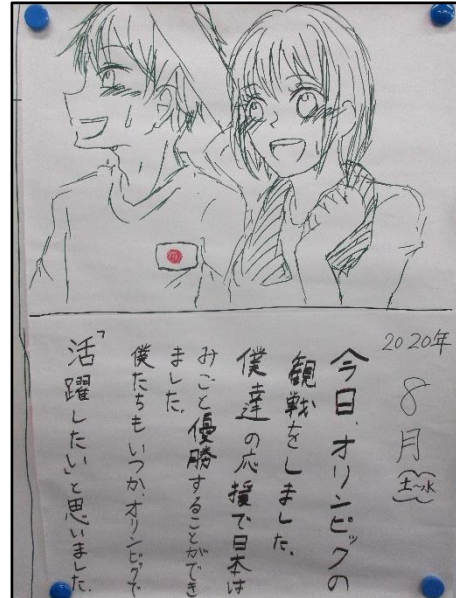 2020年
8月
(土~水)
今日、オリンピックの
観戦をしました。
僕達の応援で日本は
みごと優勝することができ
ました。
僕たちもいつか、オリンピックで
「活躍したい」と思いました。